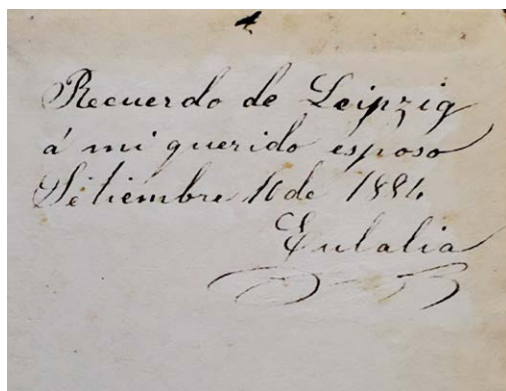 Recuerdo de Leipzig
á mi querido esposo
Setiembre 16 de 1884.
Eulalia